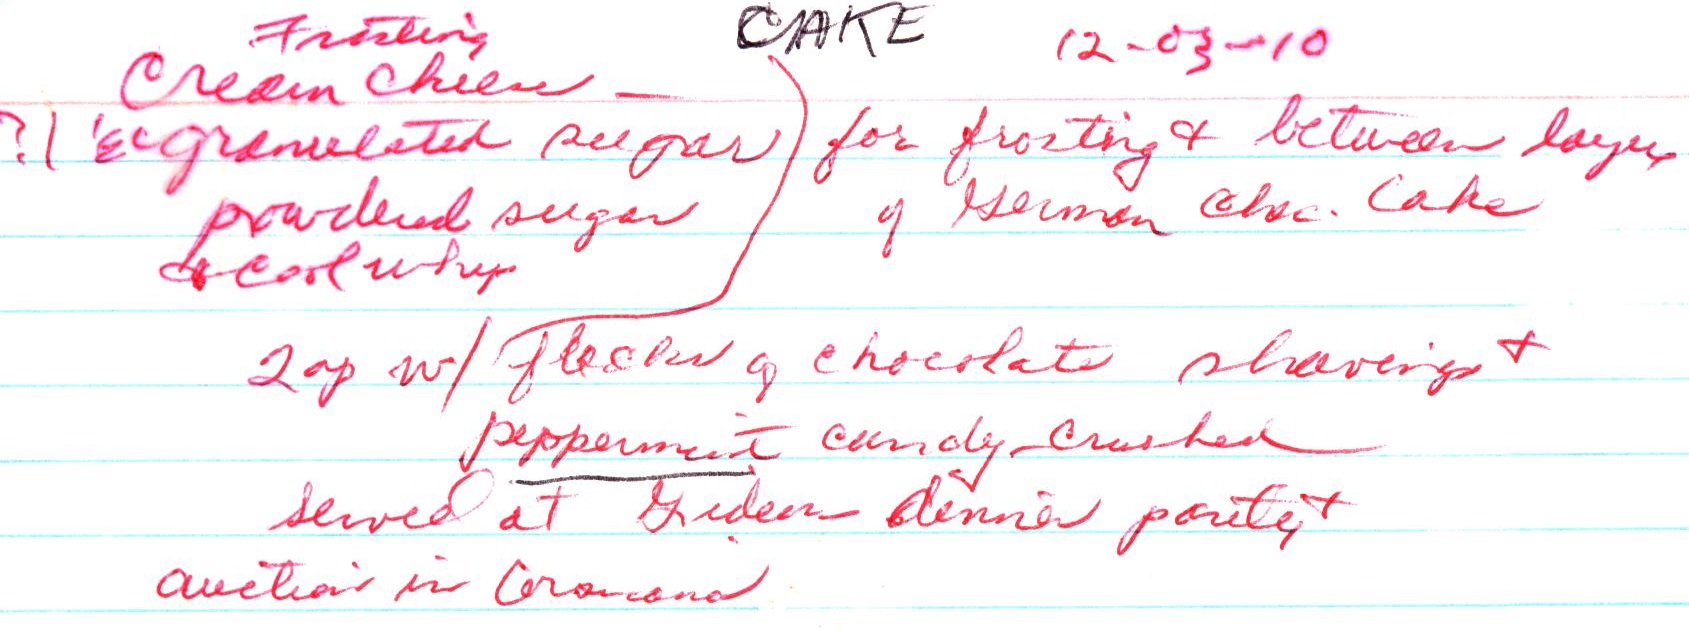 Frosting CAKE 12-03-10
Cream Cheese —
?| granulated sugar for frosting & between layers
powdered sugar of German Choc. Cake
& Cool whip
Top w/ flecks of chocolate shavings +
peppermint candy-crushed
served at Gideon dinner party +
auction in